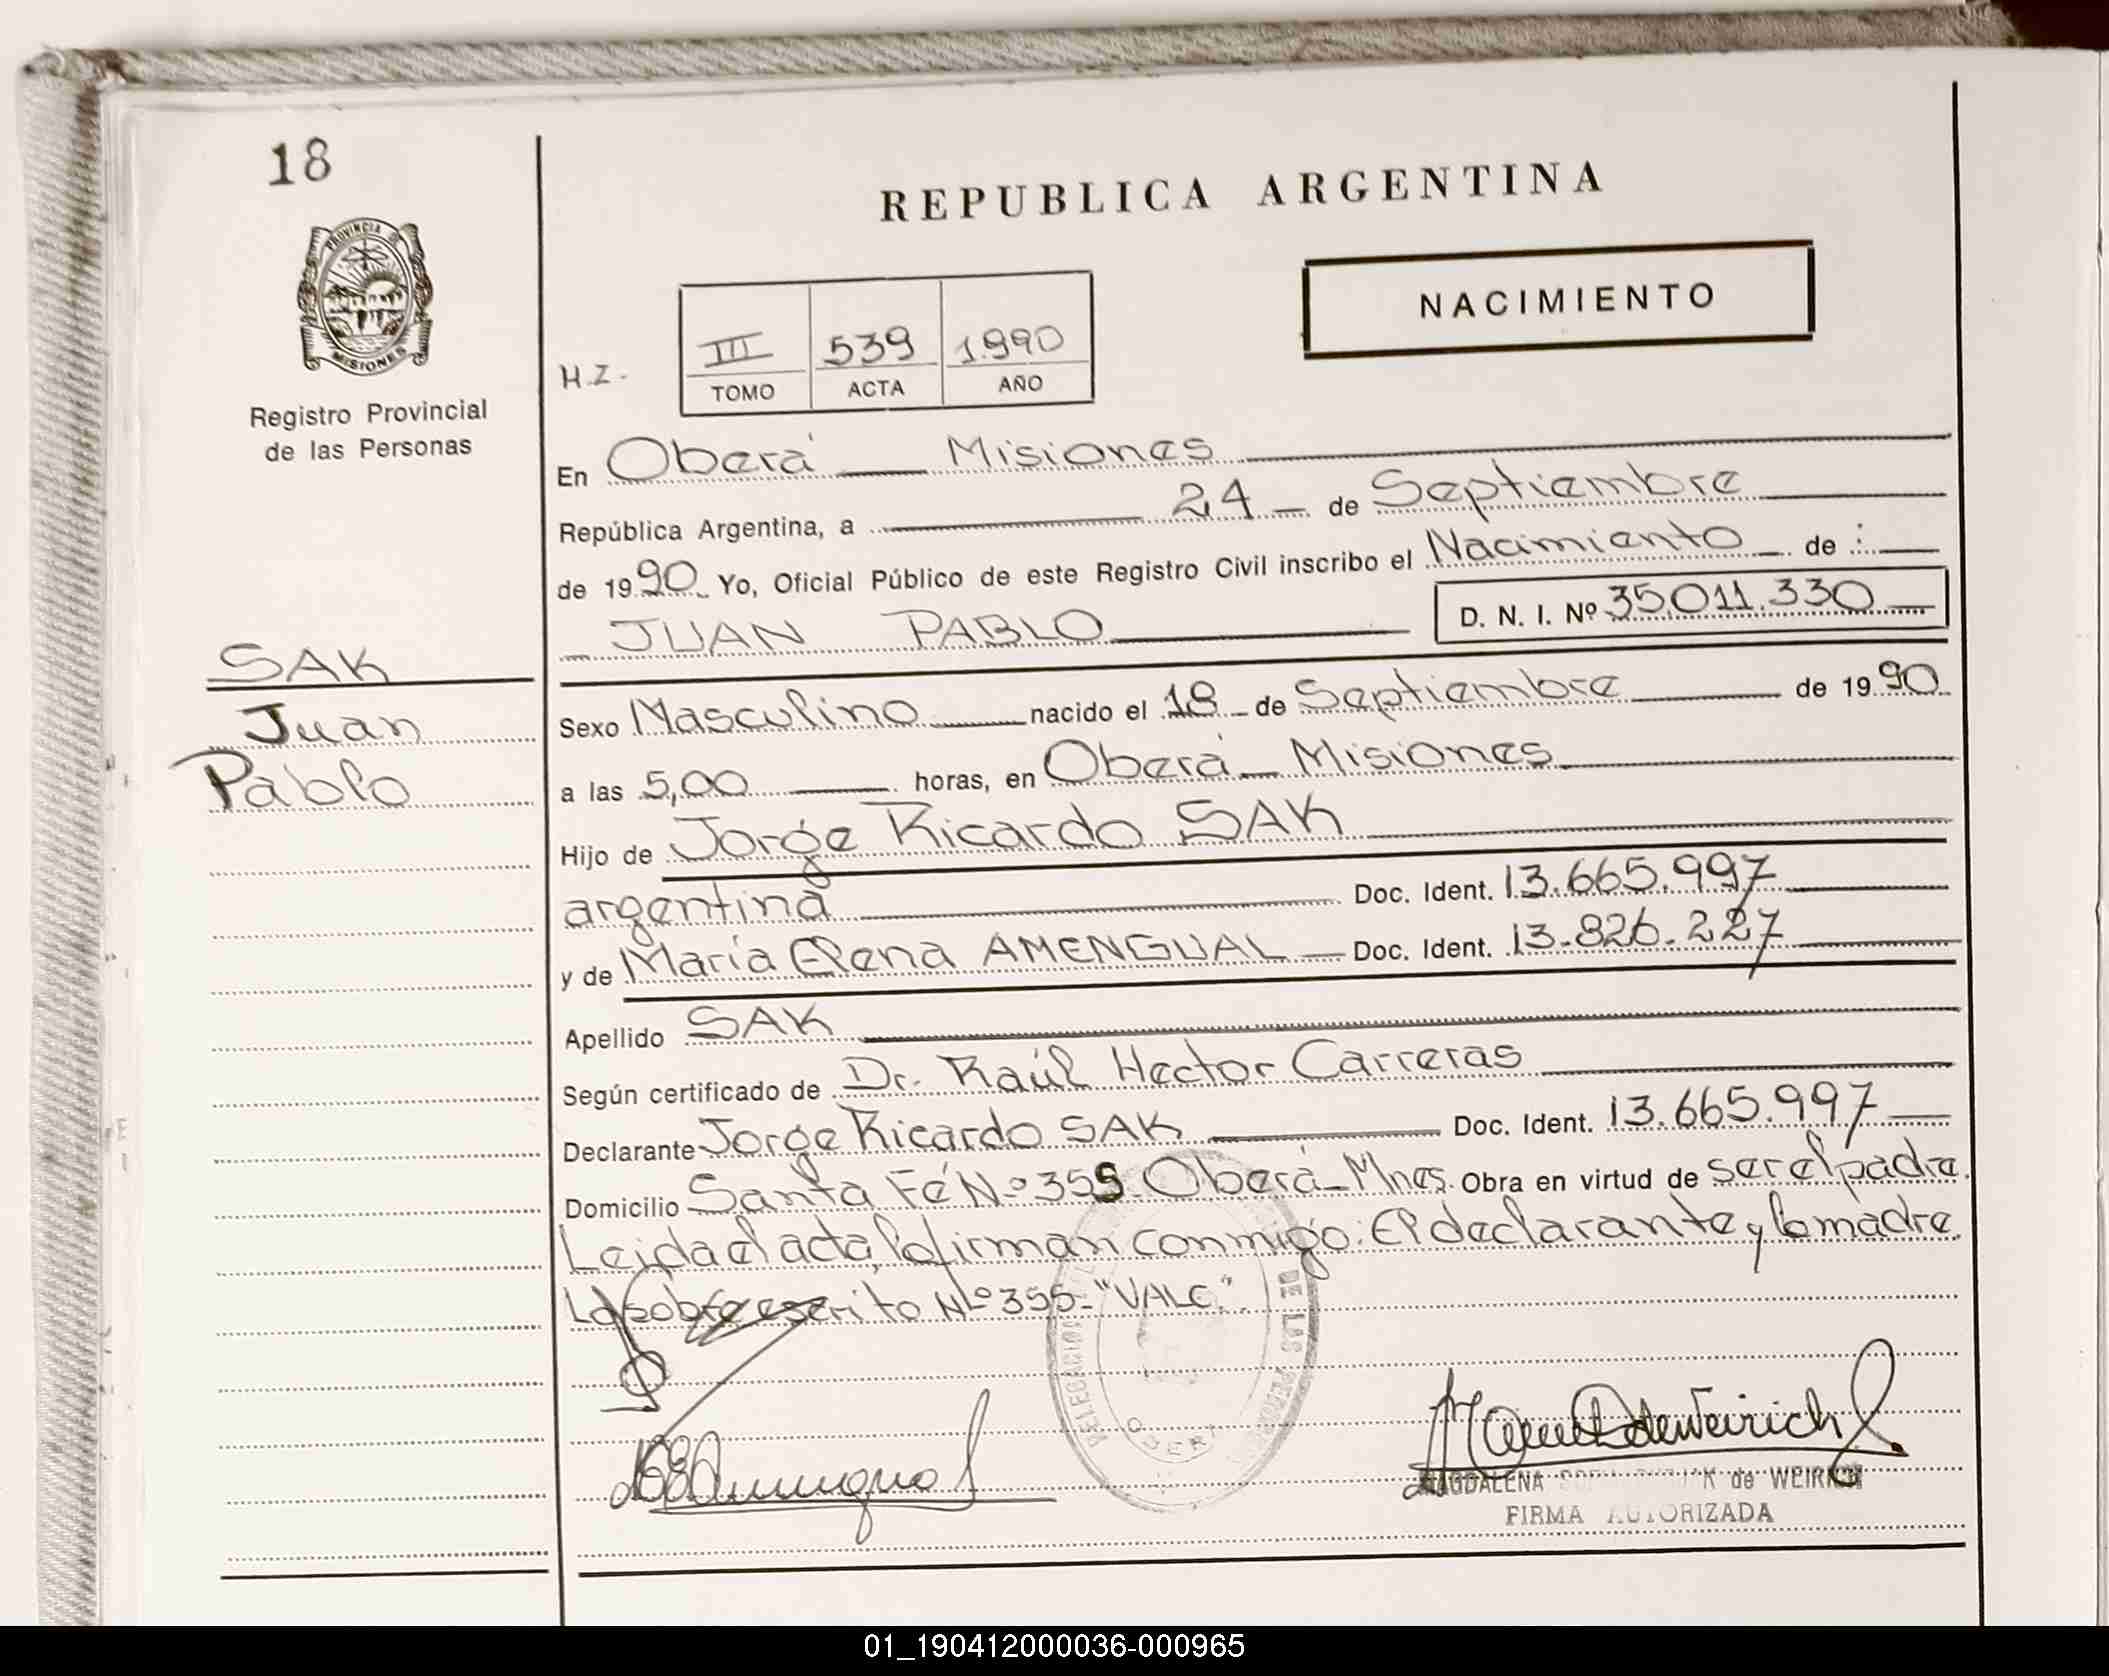 18
REPUBLICA ARGENTINA
PROVINCIA DE
MISIONES
NACIMIENTO
H.Z.
III 539 1.990
TOMO ACTA AÑO
Registro Provincial
de las Personas
En Oberá Misiones
República Argentina, a 24 de Septiembre
de 1990 Yo, Oficial Público de este Registro Civil inscribo el Nacimiento de :
JUAN PABLO D. N. I. Nº 35.011.330
SAK
Juan
Pablo
Sexo Masculino nacido el 18 de Septiembre de 1990
a las 5,00 horas, en Oberá Misiones
Hijo de Jorge Ricardo SAK
argentina Doc. Ident. 13.665.997
y de María Elena AMENGUAL Doc. Ident. 13.826.227
Apellido SAK
Según certificado de Dr. Raúl Hector Carreras
Declarante Jorge Ricardo SAK Doc. Ident. 13.665.997
Domicilio Santa Fé Nº 355 Oberá Mnes. Obra en virtud de ser el padre.
Leida el acta, la firman conmigo: El declarante y la madre.
Lo sobre escrito Nº 355 "VALE".
DELEGACION DE LAS
MAGDALENA de WEIRICH
FIRMA AUTORIZADA
01_190412000036-000965